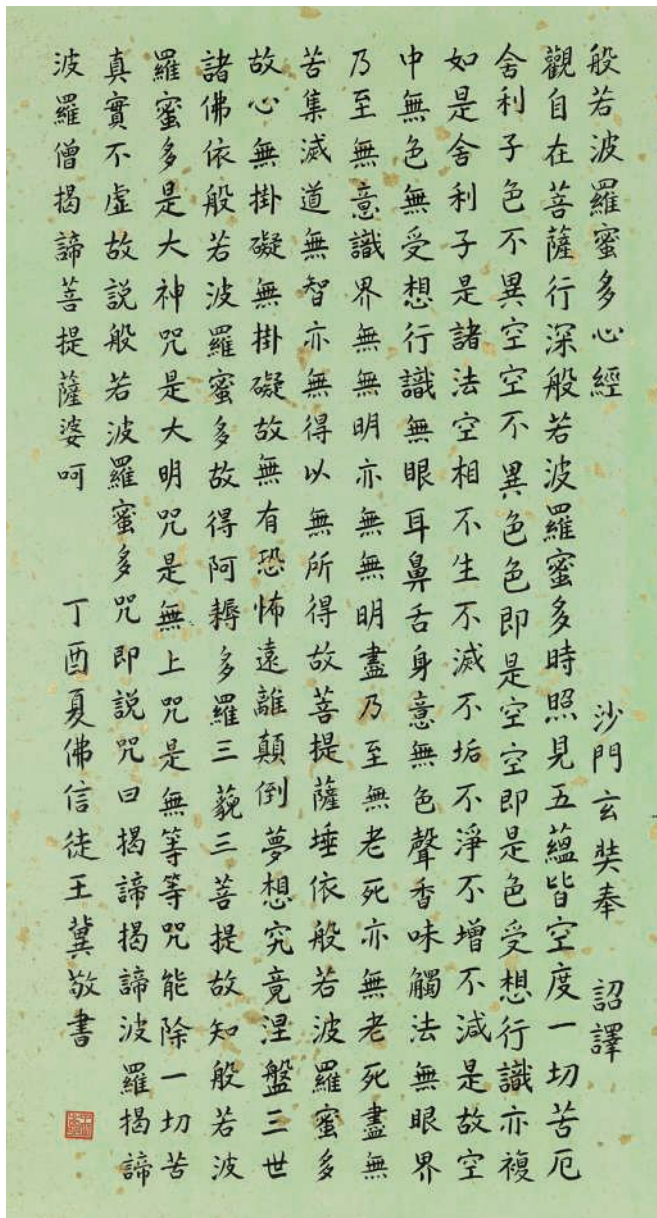 般若波羅蜜多心經 沙門玄奘奉 詔譯
觀自在菩薩行深般若波羅蜜多時照見五蘊皆空度一切苦厄
舍利子色不異空空不異色色即是空空即是色受想行識亦複
如是舍利子是諸法空相不生不滅不垢不淨不增不減是故空
中無色無受想行識無眼耳鼻舌身意無色聲香味觸法無眼界
乃至無意識界無無明亦無無明盡乃至無老死亦無老死盡無
苦集滅道無智亦無得以無所得故菩提薩埵依般若波羅蜜多
故心無掛礙無掛礙故無有恐怖遠離顛倒夢想究竟涅盤三世
諸佛依般若波羅蜜多故得阿耨多羅三藐三菩提故知般若波
羅蜜多是大神咒是大明咒是無上咒是無等等咒能除一切苦
真實不虛故説般若波羅蜜多咒即説咒曰揭諦揭諦波羅揭諦
波羅僧揭諦菩提薩婆呵 丁酉夏佛信徒王冀敬書